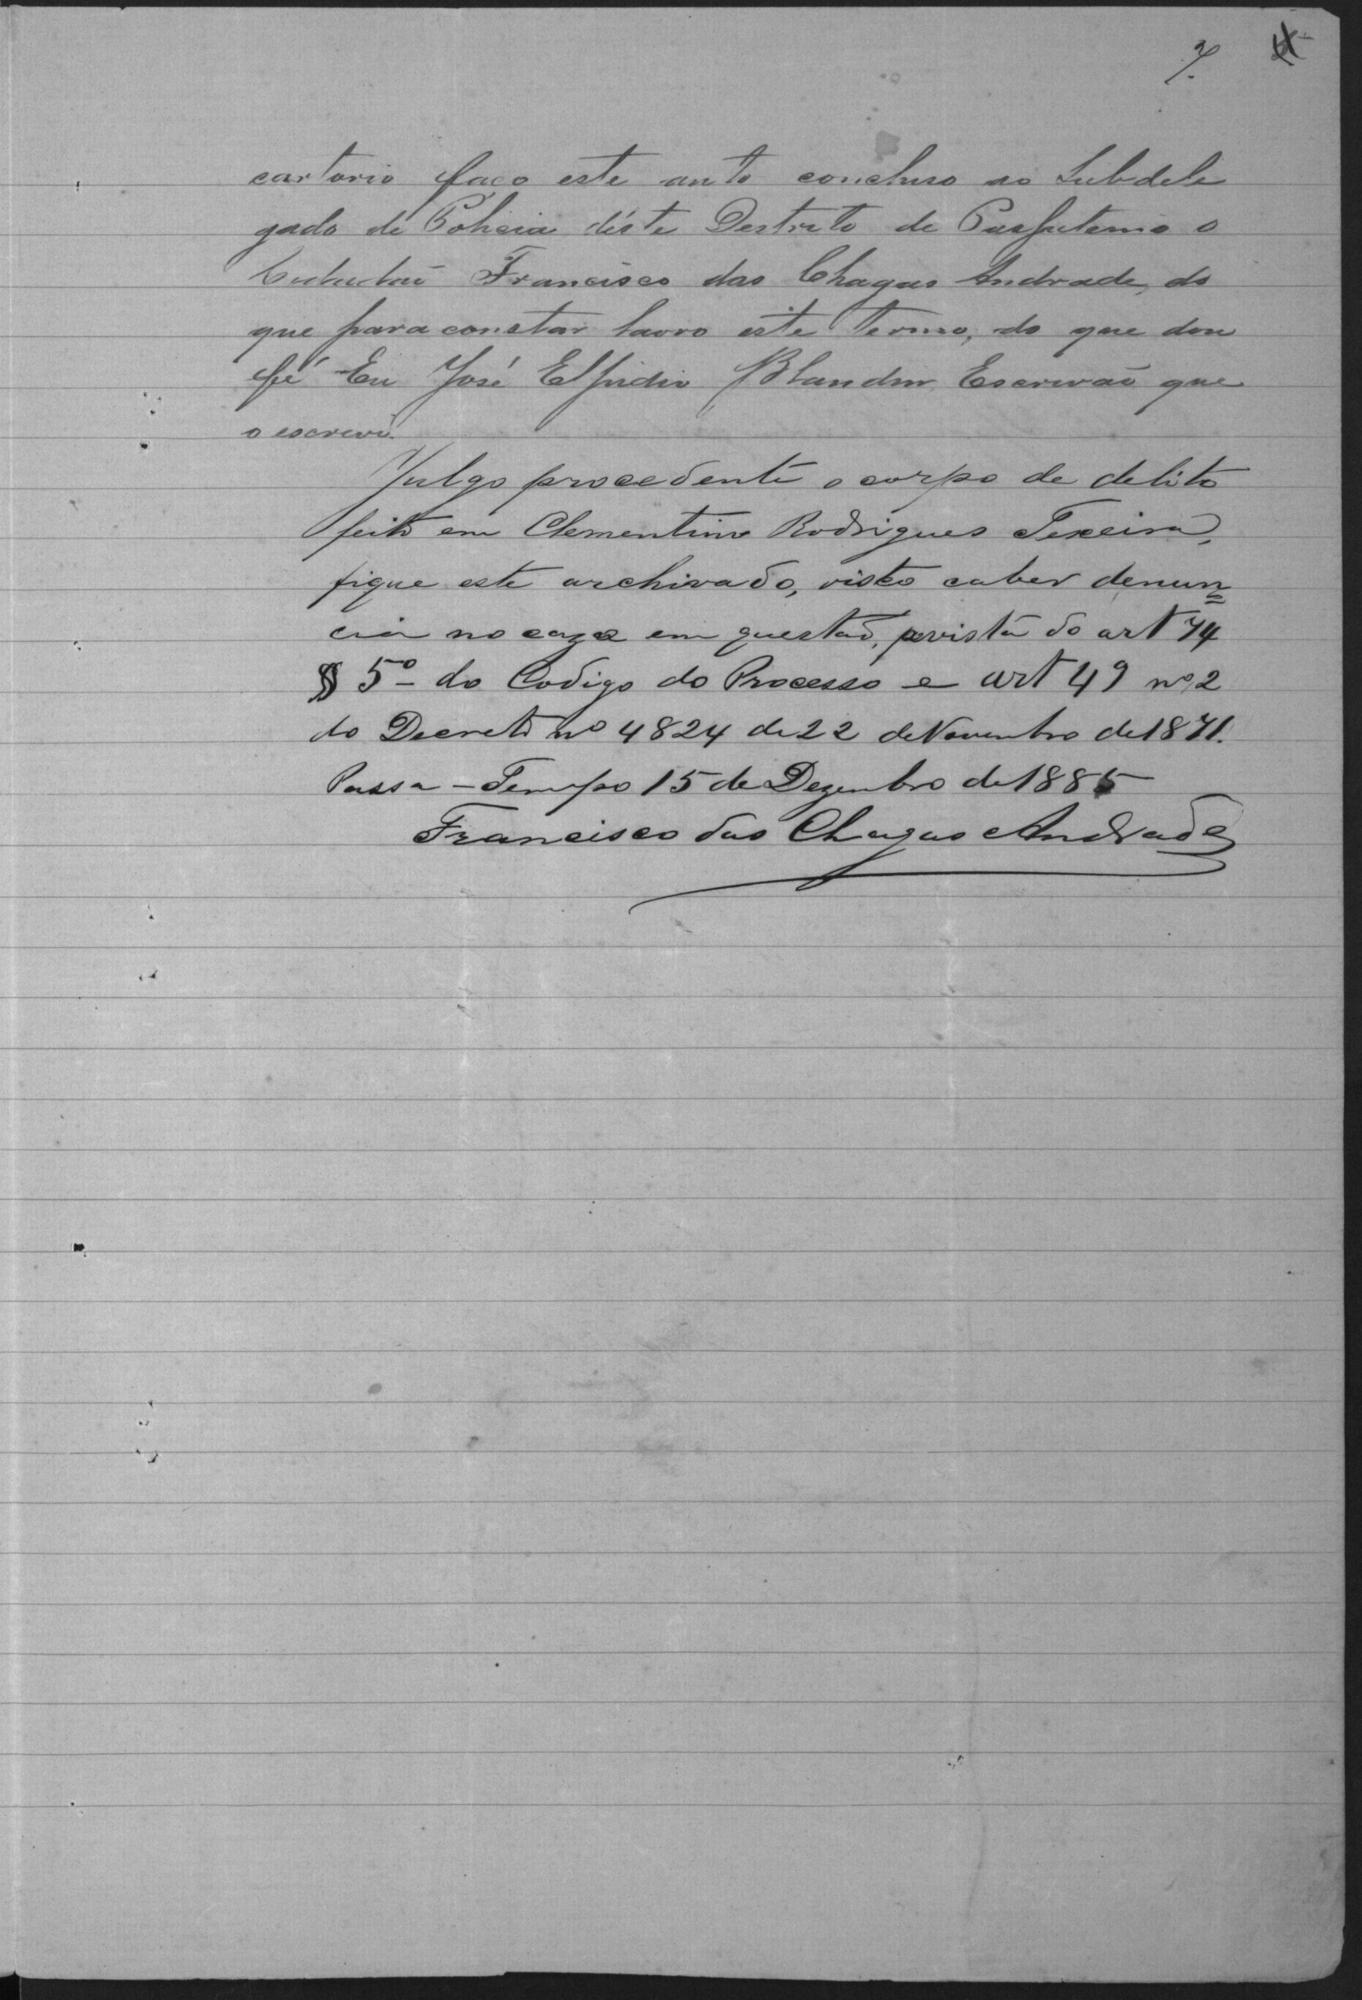 7.
cartorio faço este auto concluso ao Subdele
gado de Policia déste Destricto de Passatempo o
Cidadaõ Francisco das Chagas Andrade, do
que para constar lavro este termo, do que dou
fé Eu José Elpidio Blandm Escrivaõ que
o escrevi.
Julgo procedente o corpo de delito
feito em Clementino Rodrigues Texeira,
fique este archivado, visto caber denun=
cia no cazo em questaõ, avista do art 74
§ 5º do Codigo do Processo e art 49 nº 2
do Decreto nº 4824 de 22 de Novembro de 1871.
Passa-Tempo 15 de Dezembro de 1885
Francisco das Chagas Andrade